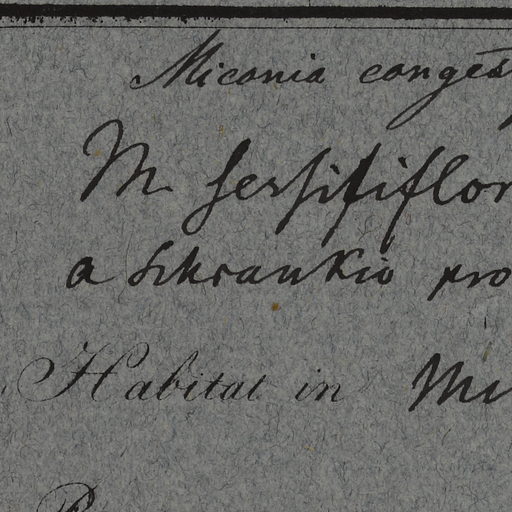 Miconia conges
M. sessiliflor
a Schrankio pro
Habitat in Mi